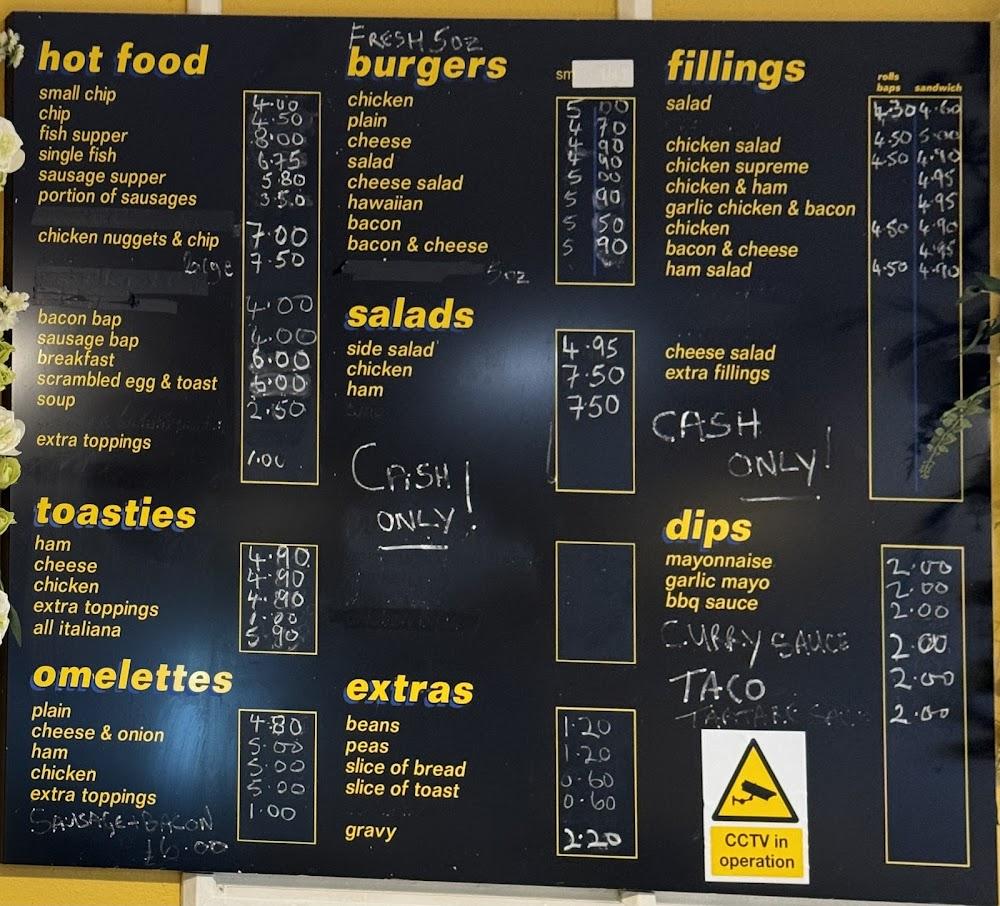 hot food
small chip 4.00
chip 4.50
fish supper 8.00
single fish 6.75
sausage supper 5.80
portion of sausages 3.50
chicken nuggets & chip 7.00
large 7.50
4.00
bacon bap
sausage bap 4.00
breakfast 6.00
scrambled egg & toast 6.00
soup 2.50
extra toppings 1.00
toasties
ham 4.90
cheese 4.90
chicken 4.90
extra toppings 1.00
all italiana 5.90
omelettes
plain 4.80
cheese & onion 5.00
ham 5.00
chicken 5.00
extra toppings 1.00
SAUSAGE + BACON
£6.00
FRESH 5oz
burgers sm
chicken 5 00
plain 4 70
cheese 4 90
salad 4 90
cheese salad 5 00
hawaiian 5 90
bacon 5 50
bacon & cheese 5 90
5oz
salads
side salad 4.95
chicken 7.50
ham 7.50
CASH
ONLY!
extras
beans 1.20
peas 1.20
slice of bread 0.60
slice of toast 0.60
gravy 2.20
fillings
rolls
baps sandwich
salad 4.30 4.60
chicken salad 4.50 5.00
chicken supreme 4.50 4.90
chicken & ham 4.95
garlic chicken & bacon 4.95
chicken 4.50 4.90
bacon & cheese 4.95
ham salad 4.50 4.90
cheese salad
extra fillings
CASH
ONLY!
dips
mayonnaise 2.00
garlic mayo 2.00
bbq sauce 2.00
CURRY SAUCE 2.00
TACO 2.00
TARTARE SAUCE 2.00
CCTV in
operation